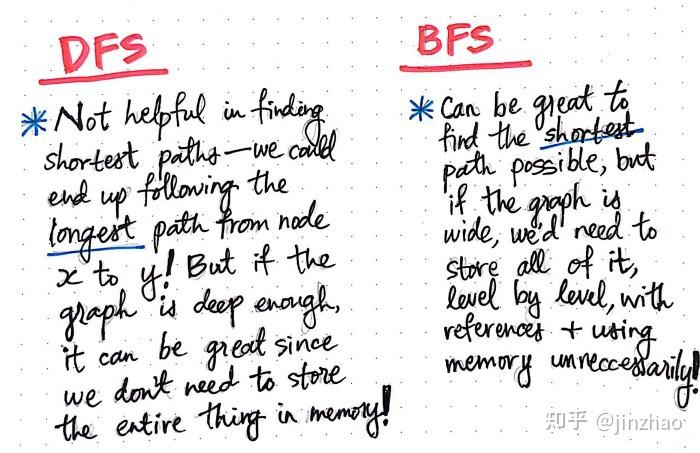 DFS
* Not helpful in finding
shortest paths—we could
end up following the
longest path from node
x to y! But if the
graph is deep enough,
it can be great since
we don't need to store
the entire thing in memory!
BFS
* Can be great to
find the shortest
path possible, but
if the graph is
wide, we'd need to
store all of it,
level by level, with
references + using
memory unneccessarily!
知乎 @jinzhao